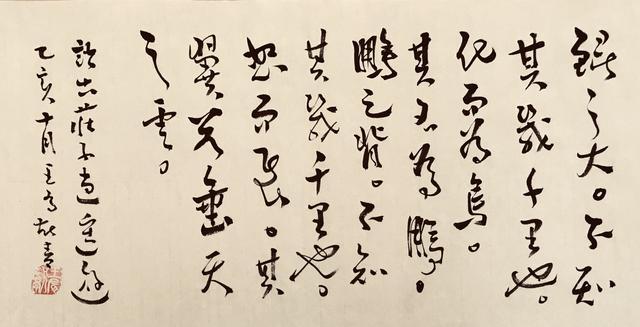 鯤之大。不知
其幾千里也。
化而為鳥。
其名為鵬。
鵬之背。不知
其幾千里也。
怒而飛。其
翼若垂天
之雲。
莊子逍遙遊
乙亥十月王